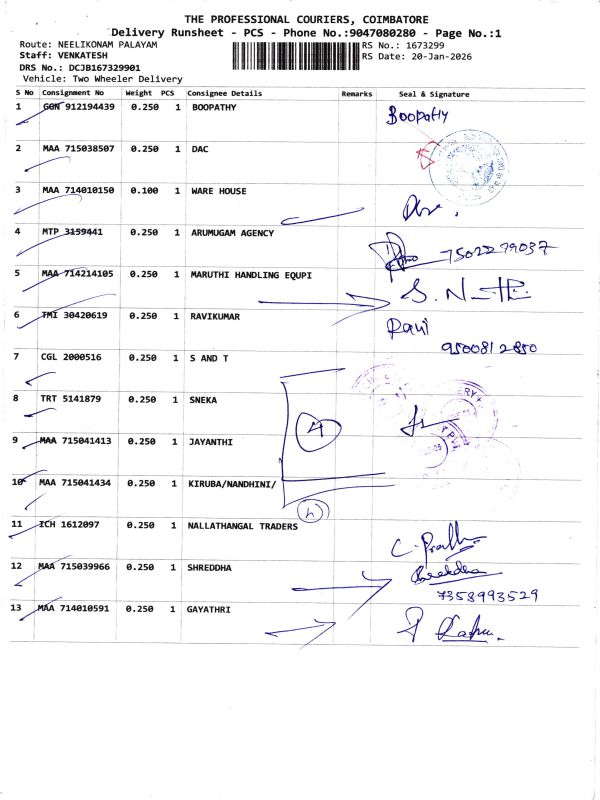 THE PROFESSIONAL COURIERS, COIMBATORE
Delivery Runsheet - PCS - Phone No.:9047080280 - Page No.:1
Route: NEELIKONAM PALAYAM RS No.: 1673299
Staff: VENKATESH RS Date: 20-Jan-2026
DRS No.: DCJB167329901
Vehicle: Two Wheeler Delivery
S No Consignment No Weight PCS Consignee Details Remarks Seal & Signature
1 GGN 912194439 0.250 1 BOOPATHY Boopathy
2 MAA 715038507 0.250 1 DAC
3 MAA 714010150 0.100 1 WARE HOUSE
4 MTP 3159441 0.250 1 ARUMUGAM AGENCY 7502279037
5 MAA 714214105 0.250 1 MARUTHI HANDLING EQUPI
6 TMI 30420619 0.250 1 RAVIKUMAR Ravi
9500812850
7 CGL 2000516 0.250 1 S AND T
8 TRT 5141879 0.250 1 SNEKA
9 MAA 715041413 0.250 1 JAYANTHI
10 MAA 715041434 0.250 1 KIRUBA/NANDHINI/
11 ICH 1612097 0.250 1 NALLATHANGAL TRADERS
12 MAA 715039966 0.250 1 SHREDDHA Shreddha
7358993529
13 MAA 714010591 0.250 1 GAYATHRI